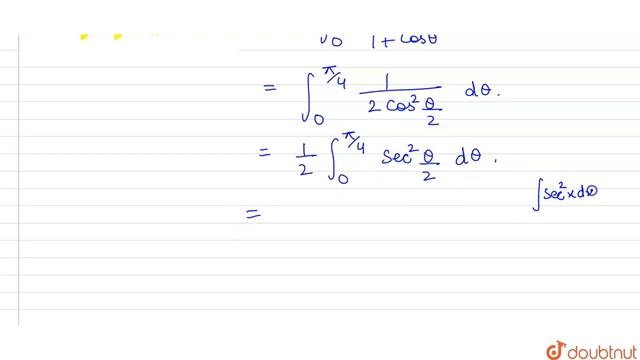 ∫₀ 1 + cosθ
= ∫₀^π/4 1 / 2 cos² θ/2 dθ.
= 1/2 ∫₀^π/4 sec² θ/2 dθ.
∫sec²x dx
=
doubtnut